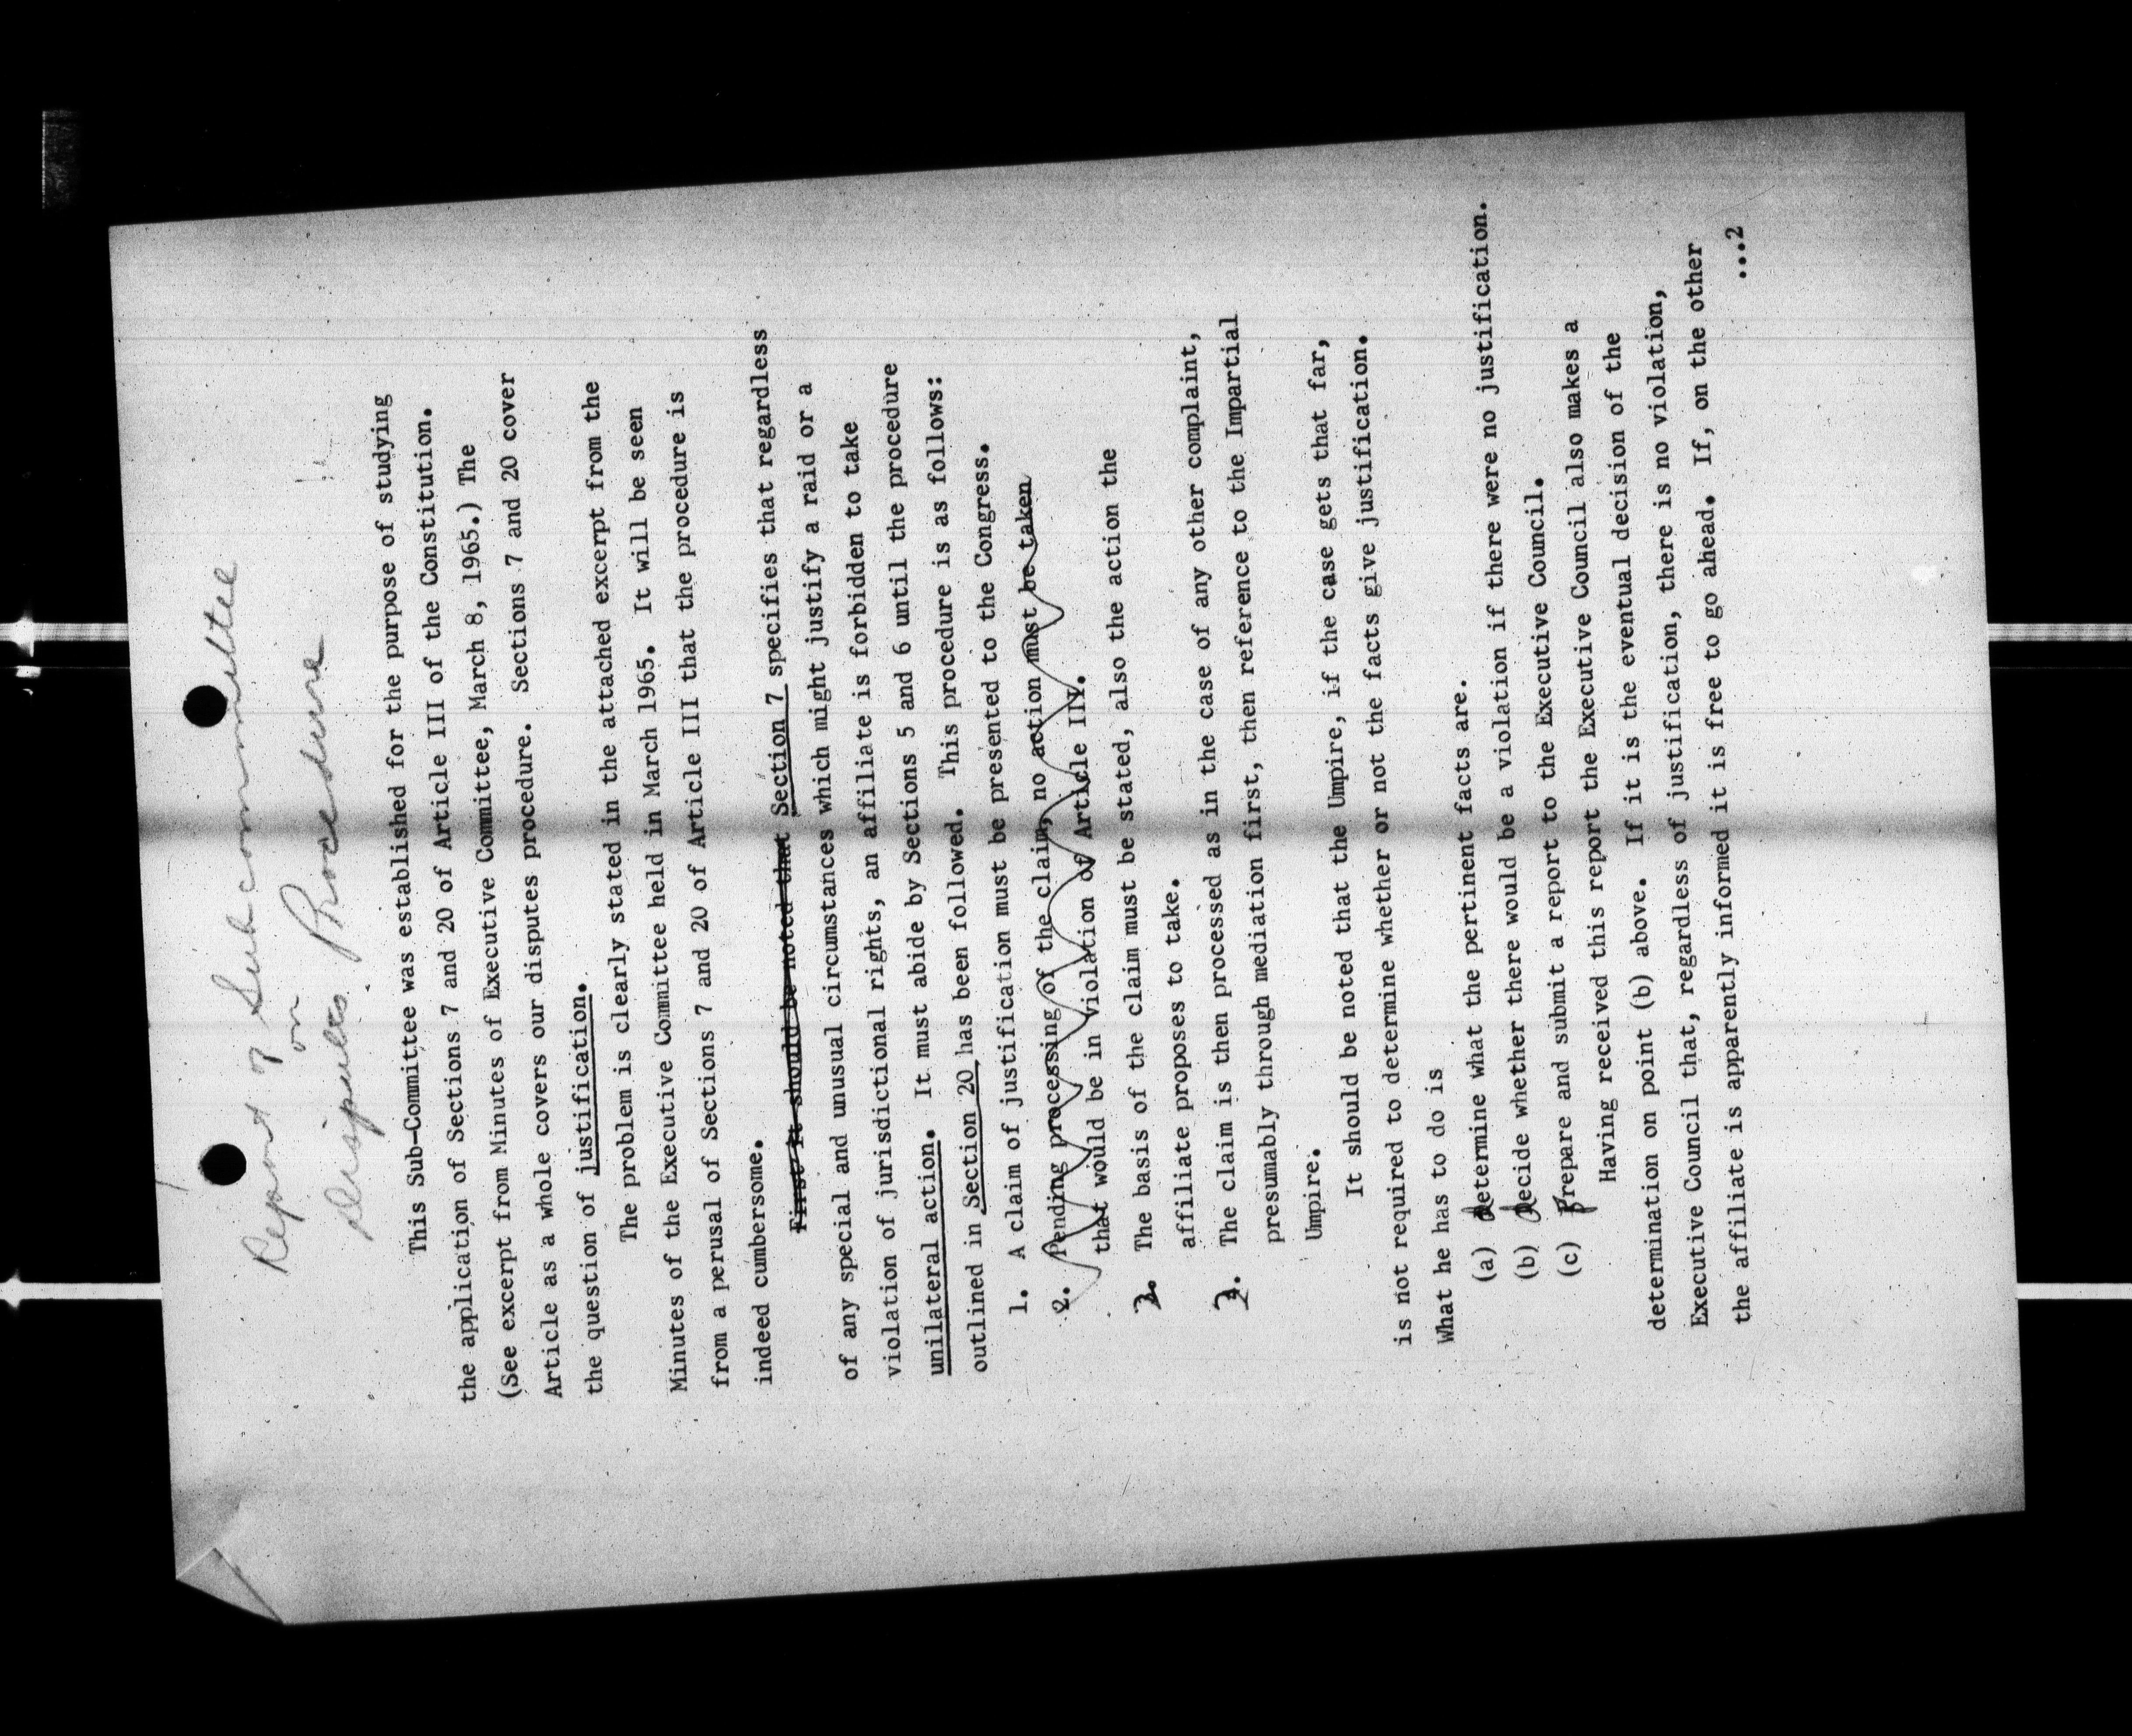 Report of Subcommittee
on
Disputes Procedure
This Sub-Committee was established for the purpose of studying
the application of Sections 7 and 20 of Article III of the Constitution.
(See excerpt from Minutes of Executive Committee, March 8, 1965.) The
Article as a whole covers our disputes procedure. Sections 7 and 20 cover
the question of justification.
The problem is clearly stated in the attached excerpt from the
Minutes of the Executive Committee held in March 1965. It will be seen
from a perusal of Sections 7 and 20 of Article III that the procedure is
indeed cumbersome.
First it should be noted that Section 7 specifies that regardless
of any special and unusual circumstances which might justify a raid or a
violation of jurisdictional rights, an affiliate is forbidden to take
unilateral action. It must abide by Sections 5 and 6 until the procedure
outlined in Section 20 has been followed. This procedure is as follows:
1. A claim of justification must be presented to the Congress.
2. Pending processing of the claim, no action must be taken
that would be in violation of Article III.
2. The basis of the claim must be stated, also the action the
affiliate proposes to take.
3. The claim is then processed as in the case of any other complaint,
presumably through mediation first, then reference to the Impartial
Umpire.
It should be noted that the Umpire, if the case gets that far,
is not required to determine whether or not the facts give justification.
What he has to do is
(a) determine what the pertinent facts are.
(b) decide whether there would be a violation if there were no justification.
(c) prepare and submit a report to the Executive Council.
Having received this report the Executive Council also makes a
determination on point (b) above. If it is the eventual decision of the
Executive Council that, regardless of justification, there is no violation,
the affiliate is apparently informed it is free to go ahead. If, on the other
...2